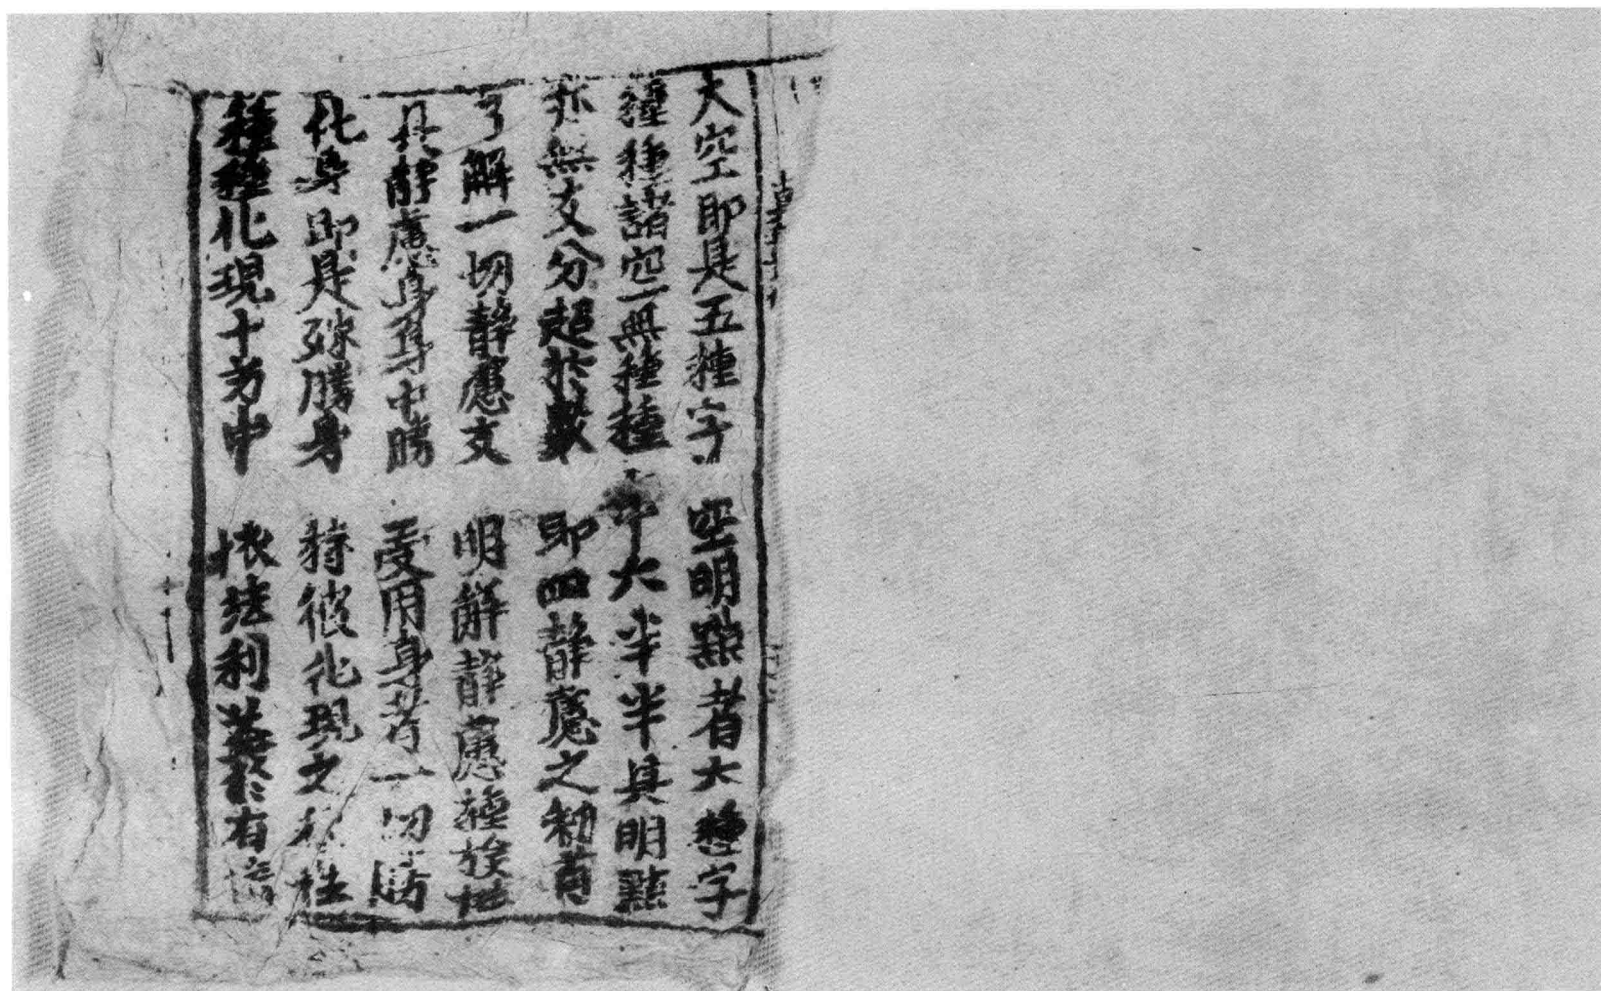 大空即是五種字 空明點者大種字
種種諸空無種種 大半半其明點
亦無支分超於數 即四靜慮之初首
了解一切靜慮支 明解靜慮種族性
具靜慮身身中勝 受用身者一切勝
化身即是殊勝身 持彼化現之種性
種種化現十方中 依法利益於有情